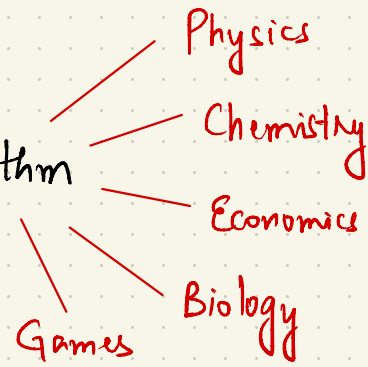 Physics
Chemistry
thm
Economics
Biology
Games